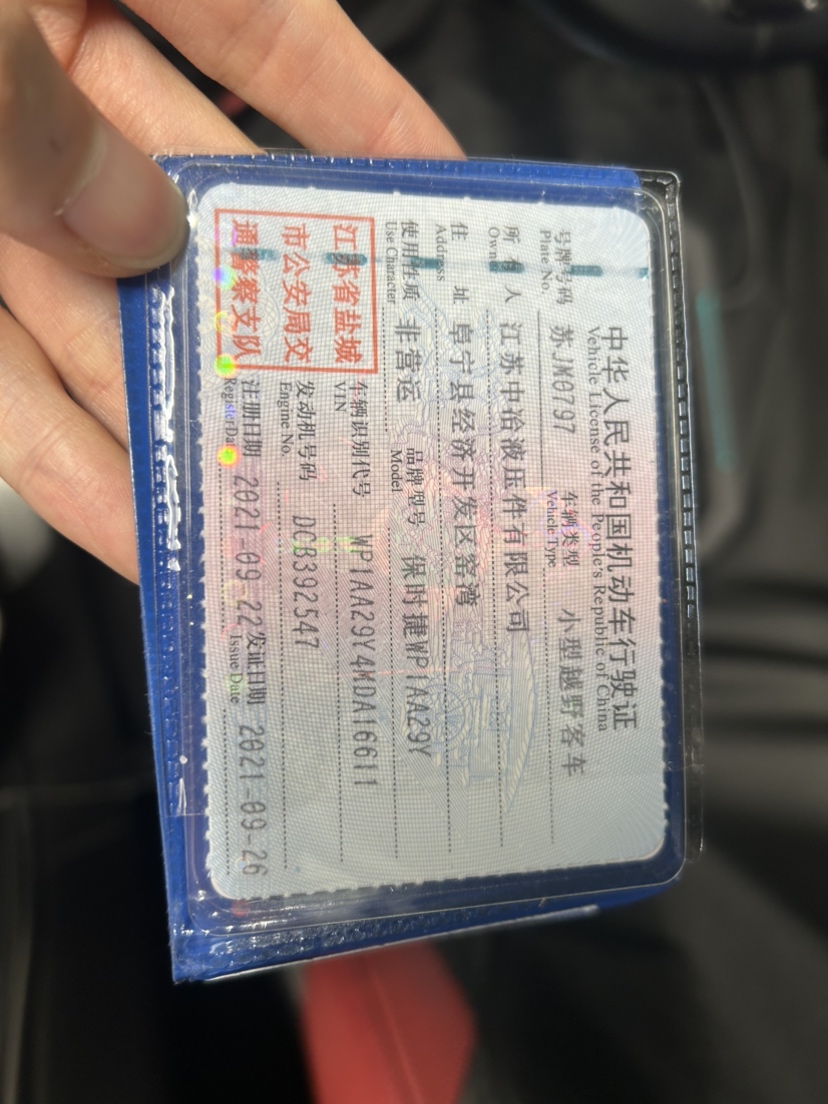 中华人民共和国机动车行驶证
Vehicle License of the People's Republic of China
号牌号码 苏JM0797 车辆类型 小型越野客车
Plate No. Vehicle Type
所有人 江苏中冶液压件有限公司
Owner
住址 阜宁县经济开发区窑湾
Address
使用性质 非营运 品牌型号 保时捷WP1AA29Y
Use Character Model
江苏省盐城
市公安局交
通警察支队
车辆识别代号 WP1AA29Y4MDA16611
VIN
发动机号码 DCB392547
Engine No.
注册日期 2021-09-22 发证日期 2021-09-26
Register Date Issue Date